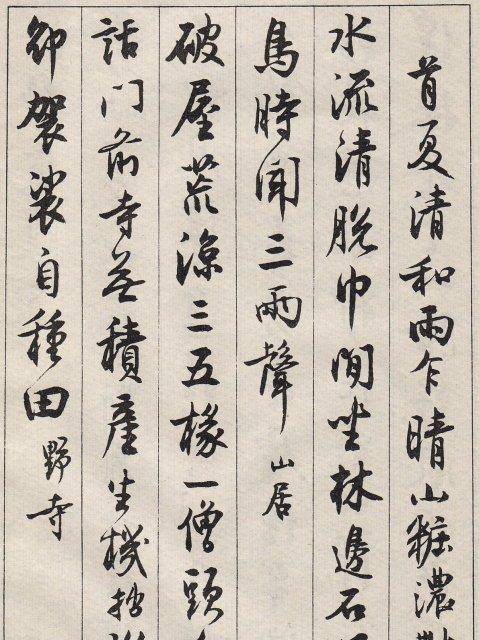 首夏清和雨乍晴山粧濃
水流清脱巾閒坐林邊石
鳥時聞三兩聲 山居
破屋荒涼三五椽一僧頭
話门前寺無積產生機拙
卸袈裟自種田 野寺